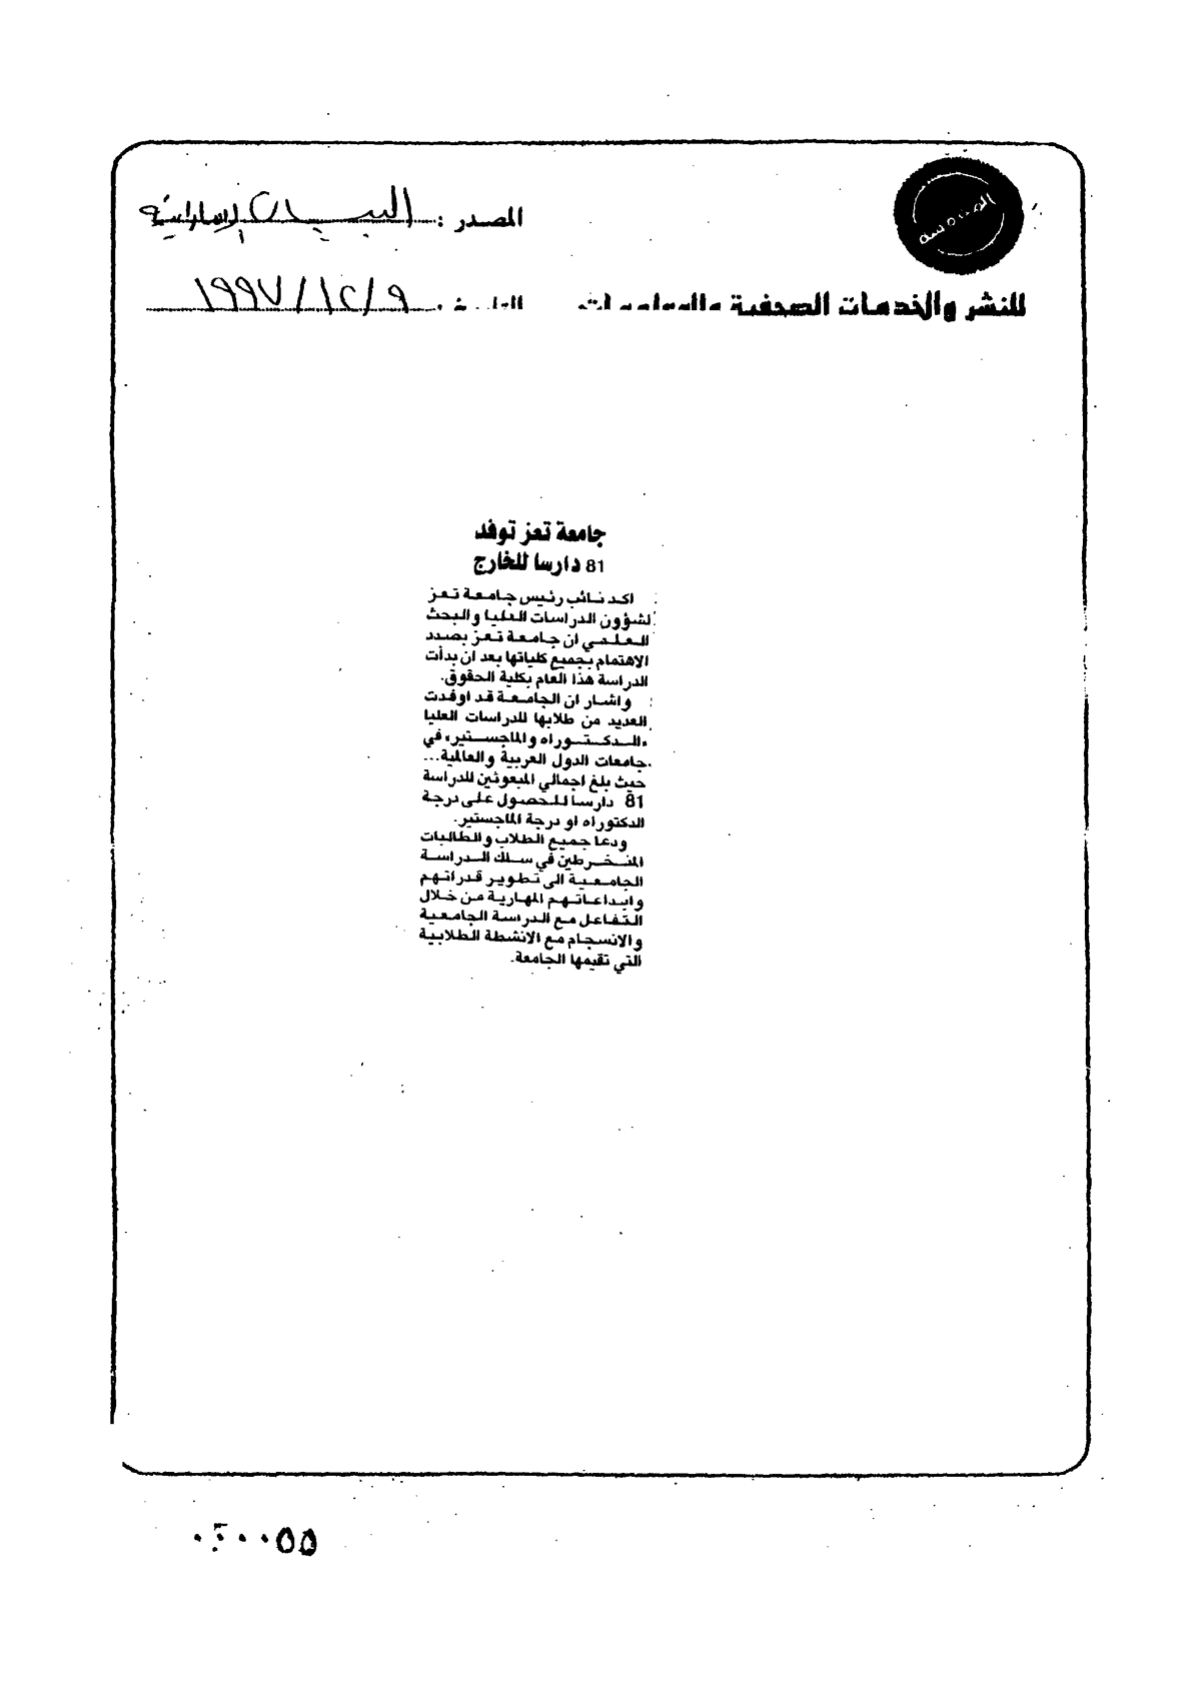 المصدر : البيان الإماراتية
للنشر والخدمات الصحفية والمعلومات
التاريخ : ١٩٩٧/١٢/٩
جامعة تعز توفد
81 دارسا للخارج
اكد نائب رئيس جامعة تعز
لشؤون الدراسات العليا والبحث
العلمي ان جامعة تعز بصدد
الاهتمام بجميع كلياتها بعد ان بدأت
الدراسة هذا العام بكلية الحقوق.
واشار ان الجامعة قد اوفدت
العديد من طلابها للدراسات العليا
«الدكتوراه والماجستير» في
جامعات الدول العربية والعالمية...
حيث بلغ اجمالي المبعوثين للدراسة
81 دارسا للحصول على درجة
الدكتوراه او درجة الماجستير.
ودعا جميع الطلاب والطالبات
المنخرطين في سلك الدراسة
الجامعية الى تطوير قدراتهم
وابداعاتهم المهارية من خلال
التفاعل مع الدرسة الجامعية
والانسجام مع الانشطة الطلابية
التي تقيمها الجامعة.